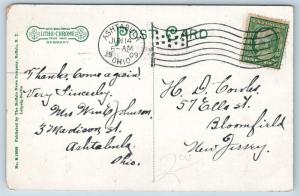 LITHO-CHROME
GERMANY
POST CARD
ASHTABULA
JUN 14
8-AM
19 09
OHIO
Thanks, Come again,
Very Sincerely,
Mrs Wm G Johnson,
3 Madison St.
Ashtabula
Ohio.
H. D. Cowles
57 Ells St
Bloomfield
New Jersey.
Published by The Buffalo News Company, Buffalo, N.Y.
Leipzig